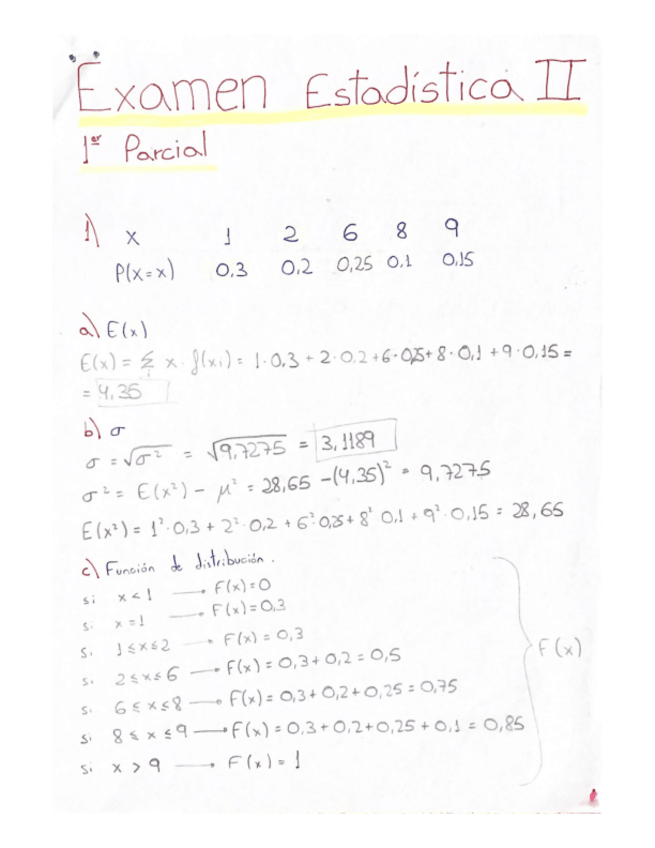 Examen Estadística II
1er Parcial
1) x 1 2 6 8 9
P(x=x) 0,3 0,2 0,25 0,1 0,15
a) E(x)
E(x) = Σ x · f(xi) = 1·0,3 + 2·0,2 + 6·0,25 + 8·0,1 + 9·0,15 =
= 4,35
b) σ
σ = √σ² = √9,7275 = 3,1189
σ² = E(x²) - μ² = 28,65 - (4,35)² = 9,7275
E(x²) = 1²·0,3 + 2²·0,2 + 6²·0,25 + 8²·0,1 + 9²·0,15 = 28,65
c) Función de distribución.
si x < 1 → F(x) = 0
si x = 1 → F(x) = 0,3
si 1 ≤ x ≤ 2 → F(x) = 0,3
si 2 ≤ x ≤ 6 → F(x) = 0,3 + 0,2 = 0,5
si 6 ≤ x ≤ 8 → F(x) = 0,3 + 0,2 + 0,25 = 0,75
si 8 ≤ x ≤ 9 → F(x) = 0,3 + 0,2 + 0,25 + 0,1 = 0,85
si x > 9 → F(x) = 1
F(x)